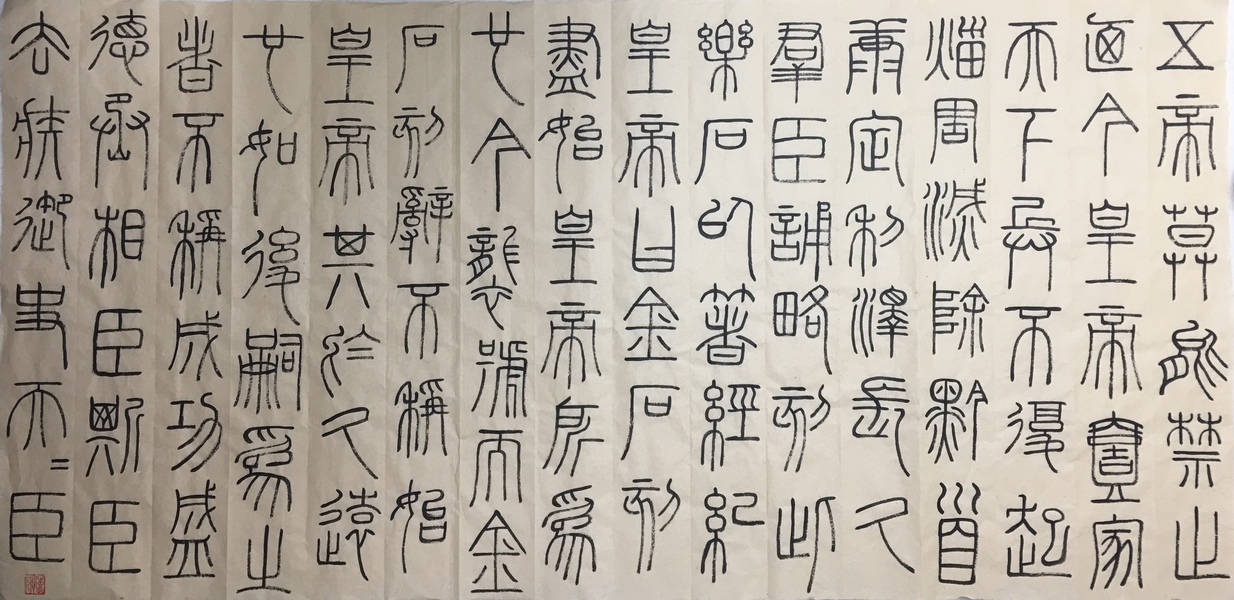 五帝莫能禁止
廼今皇帝壹家
天下兵不復起
災害滅除黔首
康定利澤長久
群臣誦略刻此
樂石以著經紀
皇帝曰金石刻
盡始皇帝所為
也今襲號而金
石刻辭不稱始
皇帝其於久遠
也如後嗣為之
者不稱成功盛
德丞相臣斯臣
去疾御史夫=臣